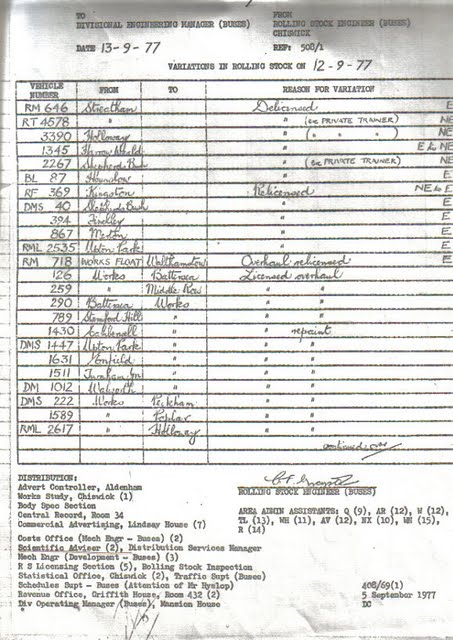 TO FROM
DIVISIONAL ENGINEERING MANAGER (BUSES) ROLLING STOCK ENGINEER (BUSES)
CHISWICK
DATE 13-9-77 REF: 508/1
VARIATIONS IN ROLLING STOCK ON 12-9-77
VEHICLE NUMBER FROM TO REASON FOR VARIATION
RM 646 Streatham Delicensed E
RT 4578 " " (ex PRIVATE TRAINER) NE
3390 Holloway " ( " " ) NE
1345 " E & NE
2267 Shepherds Bush " (ex PRIVATE TRAINER) NE
BL 87 Hounslow " E
RF 369 Kingston Relicensed NE & E
DMS 40 Shepherds Bush " E
394 Finchley " E
867 Merton " E
RML 2535 Upton Park " E
RM 718 WORKS FLOAT Walthamstow Overhaul relicensed E
126 Works Battersea Licensed overhaul
259 " Middle Row " "
290 Battersea Works " "
789 Stamford Hill " " "
1430 Camberwell " " repaint
DMS 1447 Upton Park " " "
1631 Enfield " " "
1511 Turnham Gn " " "
DM 1012 Walworth " " "
DMS 222 Works Peckham " "
1589 " Poplar " "
RML 2617 " Holloway " "
continued over
DISTRIBUTION:
Advert Controller, Aldenham
ROLLING STOCK ENGINEER (BUSES)
Works Study, Chiswick (1)
Body Spec Section
Central Record, Room 34
Commercial Advertising, Lindsay House (7)
AREA ADMIN ASSISTANTS: Q (9), AR (12), W (12),
TL (13), WH (11), AV (12), NX (10), WN (15),
R (14)
Costs Office (Mech Engr - Buses) (2)
Scientific Adviser (2), Distribution Services Manager
Mech Engr (Development - Buses) (3)
R S Licensing Section (5), Rolling Stock Inspection
Statistical Office, Chiswick (2), Traffic Supt (Buses)
Schedules Supt - Buses (Attention of Mr Hyslop) 408/69(1)
Revenue Office, Griffith House, Room 432 (2) 5 September 1977
Div Operating Manager (Buses), Mansion House DC